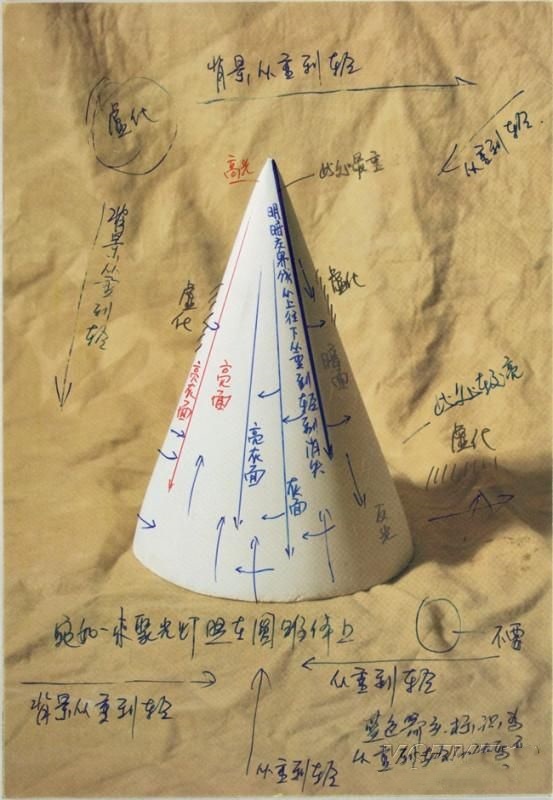 背景从重到轻
虚化
从重到轻
高光
此处最重
背景从重到轻
明暗交界线从上往下从重到轻到消失
虚化
虚化
亮灰面
亮面
暗面
此处较亮
虚化
亮灰面
灰面
反光
宛如一束聚光灯照在圆锥体上
不要
从重到轻
背景从重到轻
从重到轻
蓝色箭头标识为
从重到轻